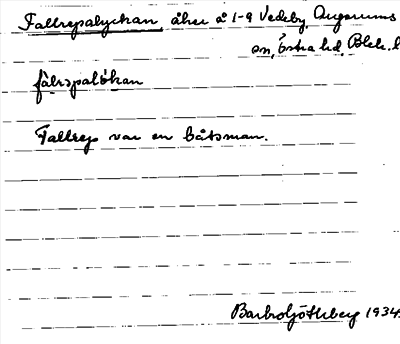 Fallrepalyckan, åker å 1-9 Vedeby, Augerums
sn, Östra hd, Blek. l
fàlrəpalökan
Fallrep var en båtsman.
1934